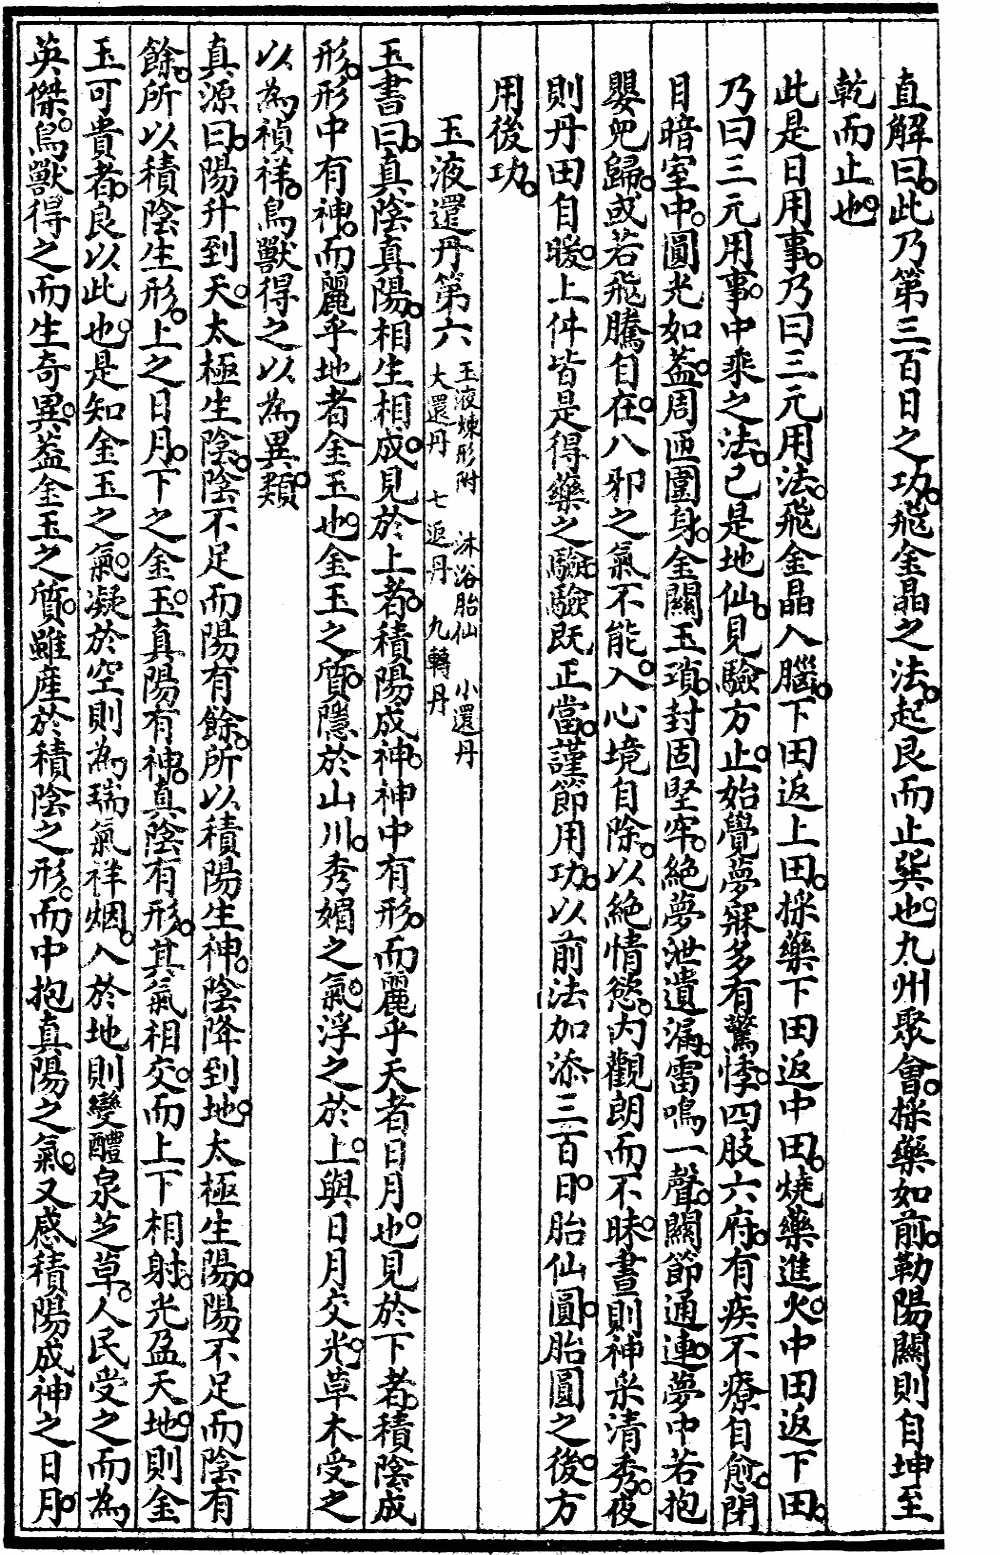 直解曰。此乃第三百日之功。飛金晶之法。起艮而止巽也。九州聚會。採藥如前。勒陽關則自坤至
乾而止也。
此是日用事。乃曰三元用法。飛金晶入腦。下田返上田。採藥下田返中田。燒藥進火。中田返下田。
乃曰三元用事。中乘之法。已是地仙。見驗方止。始覺夢寐多有驚悸。四肢六府。有疾不療自愈。閉
目暗室中。圓光如蓋。周匝圍身。金關玉瑣。封固堅牢。絕夢泄遺漏。雷鳴一聲。關節通連。夢中若抱
嬰兒歸。或若飛騰自在。八邪之氣不能入。心境自除。以絕情慾。內觀朗而不昧。晝則神采清秀。夜
則丹田自暖。上件皆是得藥之驗。驗既正當。謹節用功。以前法加添三百日。胎仙圓。胎圓之後。方
用後功。
玉液還丹第六 玉液煉形附 沐浴胎仙 小還丹
大還丹 七返丹 九轉丹
玉書曰。真陰真陽。相生相成。見於上者。積陽成神。神中有形。而麗乎天者日月也。見於下者。積陰成
形。形中有神。而麗乎地者金玉也。金玉之質。隱於山川。秀媚之氣。浮之於上。與日月交光。草木受之
以為禎祥。鳥獸得之以為異類。
真源曰。陽升到天。太極生陰。陰不足而陽有餘。所以積陽生神。陰降到地。太極生陽。陽不足而陰有
餘。所以積陰生形。上之日月。下之金玉。真陽有神。真陰有形。其氣相交。而上下相射。光盈天地。則金
玉可貴者。良以此也。是知金玉之氣。凝於空則為瑞氣祥烟。入於地則變醴泉芝草。人民受之而為
英傑。鳥獸得之而生奇異。蓋金玉之質。雖産於積陰之形。而中抱真陽之氣。又感積陽成神之日月。